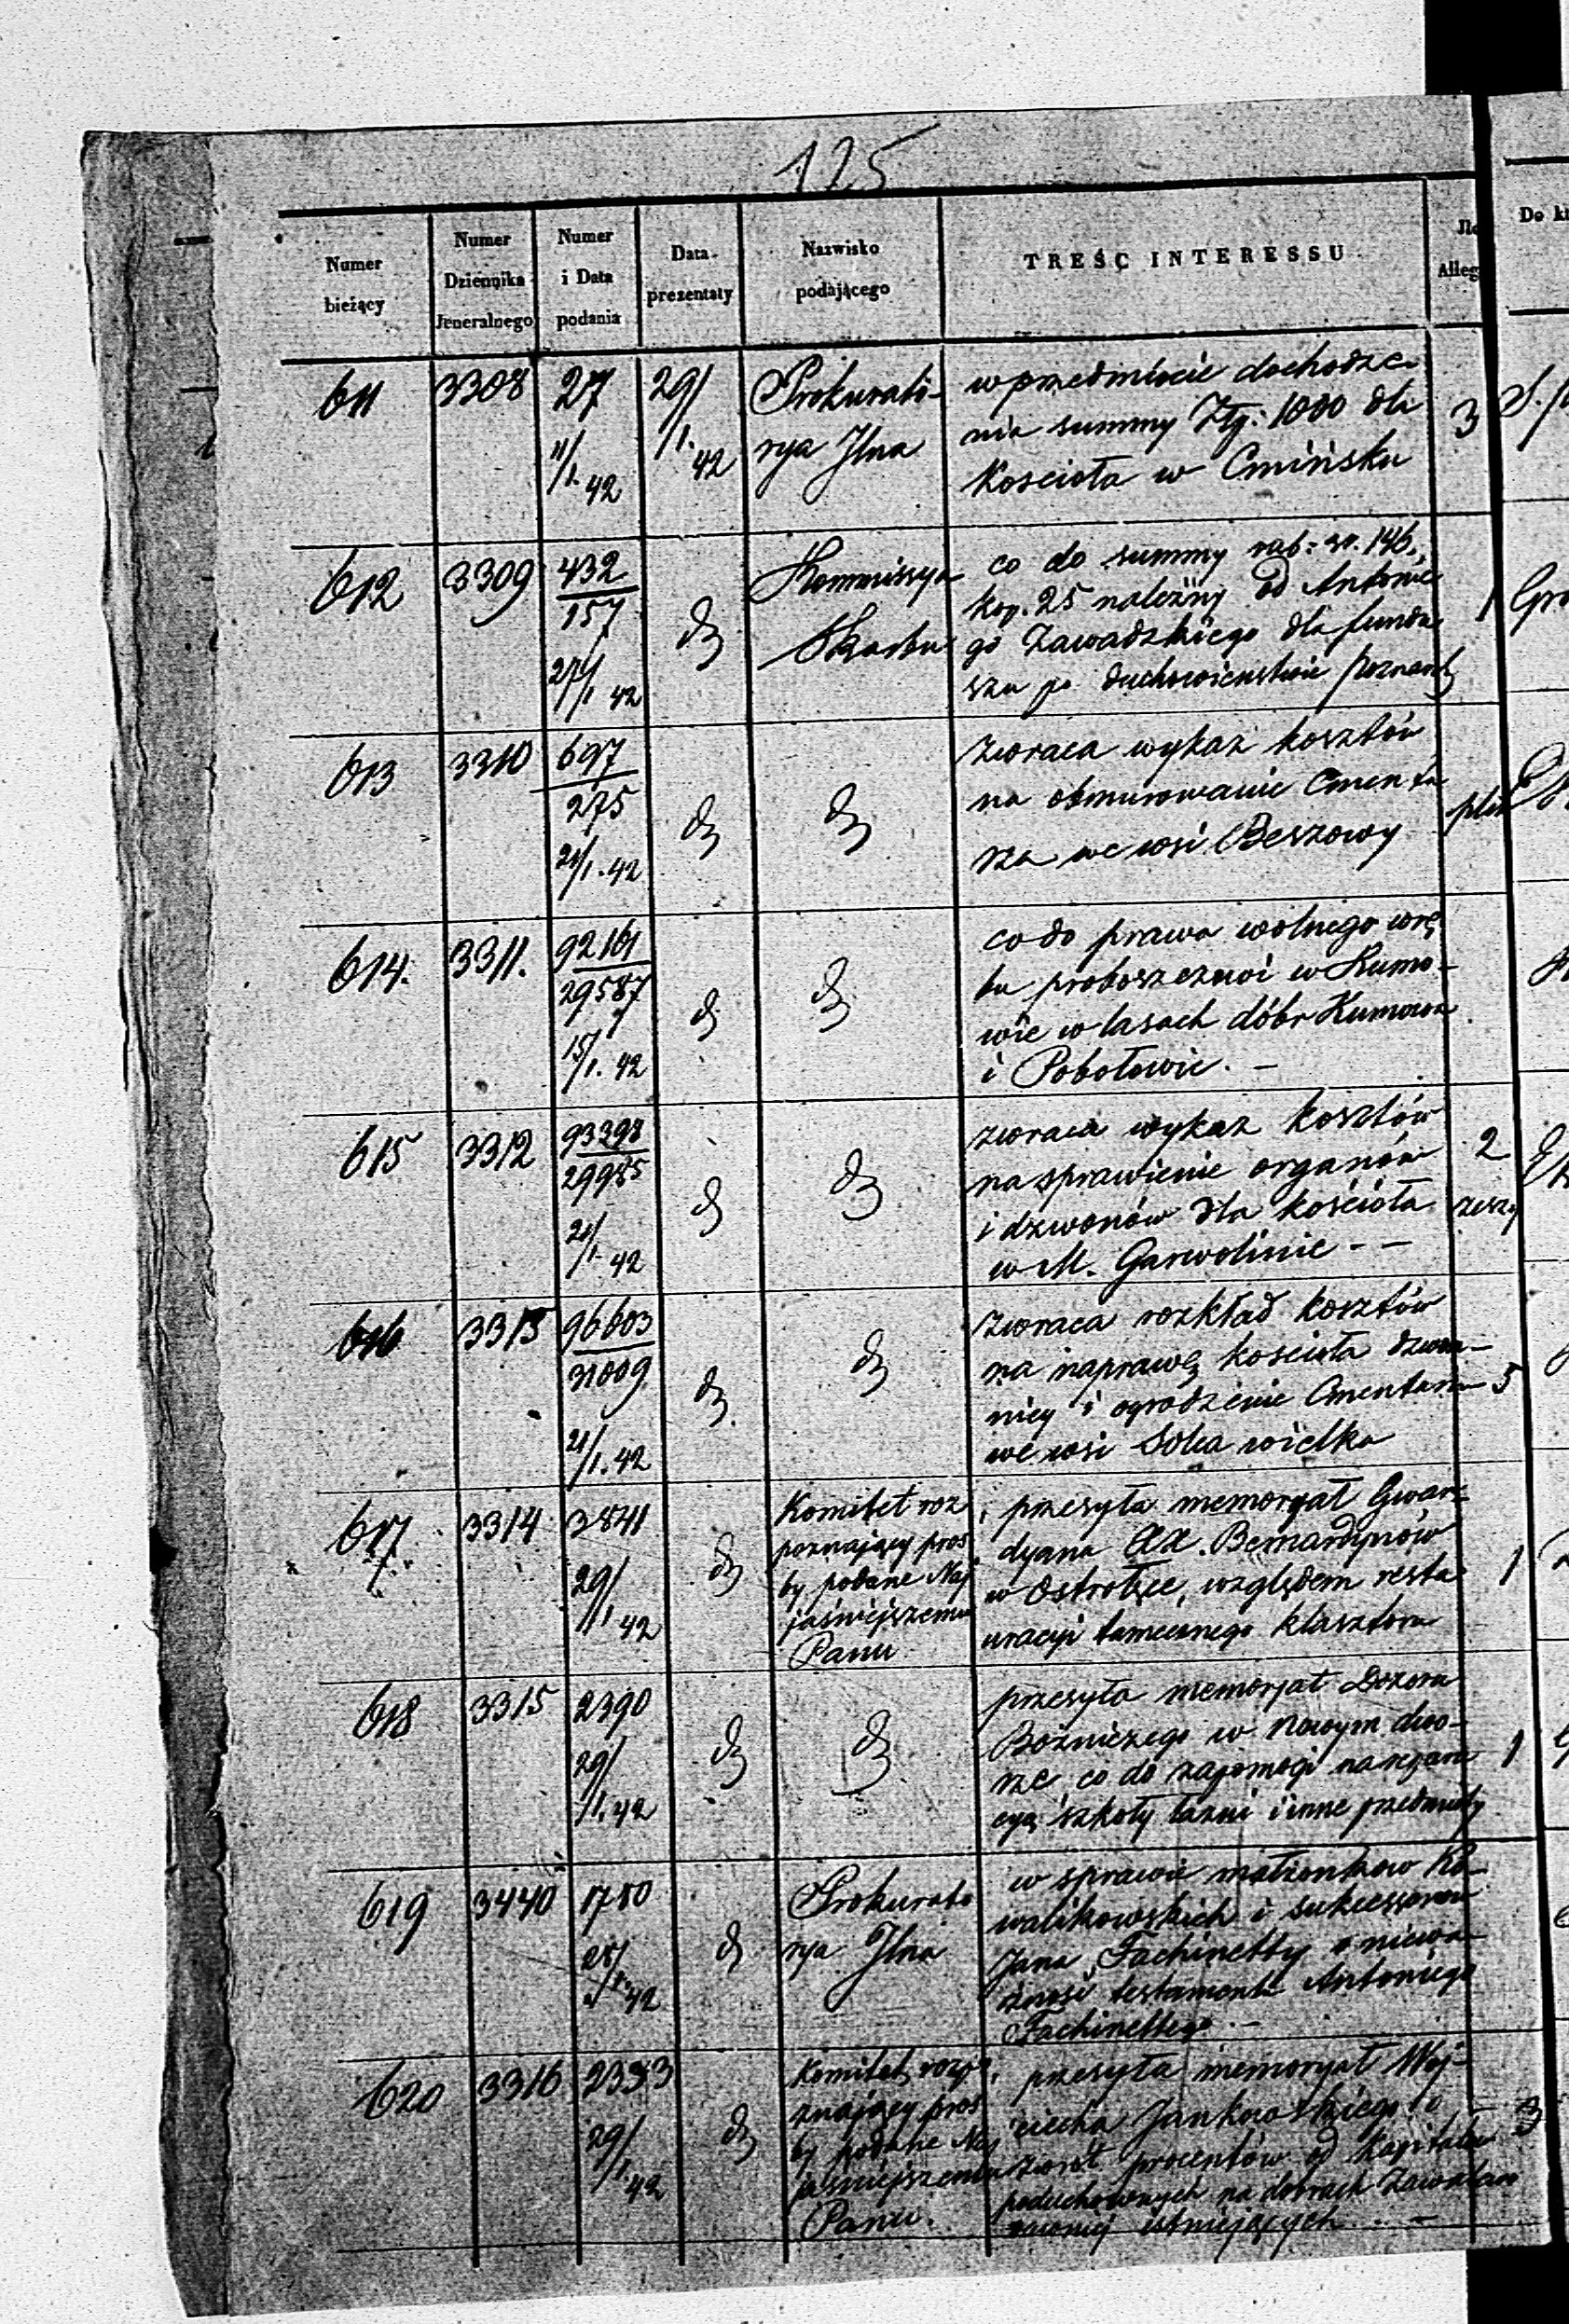 125
Numer bieżący
Numer Dziennika Jeneralnego
Numer i Data podania
Data prezentaty
Nazwisko podającego
TREŚĆ INTERESSU
Alleg
Do
611 3308 27 11/1. 42 29/1. 42
Prokurato-
rya Jlna
w przedmiocie dochodze-
nia summy Złp: 1000 dla
Kościoła w Cmińsku
3
612 3309 432/157 27/1 42 d
Kommissya
Skarbu
co do summy rub: sr. 146,
kop. 25 należnej od Antonie
go Zawadzkiego dla fundu
szu po duchowieństwie
1
613 3310 697/275 21/1. 42 d d
zwraca wykaz kosztów
na obmurowanie Cmenta
rza we wsi Beszowy
plik
614. 3311. 92161/29587 15/1. 42 d d
co do prawa wolnego wrę
bu proboszczowi w Kumo-
wie w lasach dóbr Kumowa
i Pobołowic. -
615 3312 93398/29985 21/1. 42 d d
zwraca wykaz kosztów
na sprawienie organów
i dzwonów dla kościoła
w M. Garwolinie - -
2
zeszy
616 3313 96603/31009 21/1. 42 d d
zwraca rozkład kosztów
na naprawę kościoła dzwon-
nicy i ogrodzenie Cmentarza
we wsi Sólca wielka
5
617 3314 3841 29/1 42 d
Komitet roz
poznający proś
by podane Naj
jaśniejszemu
Panu
przesyła memoryał Gwar-
dyana XX. Bernardynów
w Ostrołęce, względem resta
uracyi tamecznego klasztoru
1
618 3315 2390 29/1. 42 d d
przesyła memoryał Dozoru
Bożniczego w Nowym dwo-
rze co do zapomogi na
szkoły łaźni i inne przedmioty
1
619 3440 1780 42 d
Prokurato
rya Jlna
w sprawie małżonków Ko-
walikowskich i sukcessorów
Jana Fachinetty o niewa-
żność testamentu Antoniego
Fachinettego. -
620 3316 2393 29/1 42 d
Komitet rozpo
znający proś
by podane Naj
jaśniejszemu
Panu.
przesyła memoryał Woj-
ciecha Jankowskiego o
zwrot procentów od kapitałów
poduchownych na dobrach
istniejących. -
3